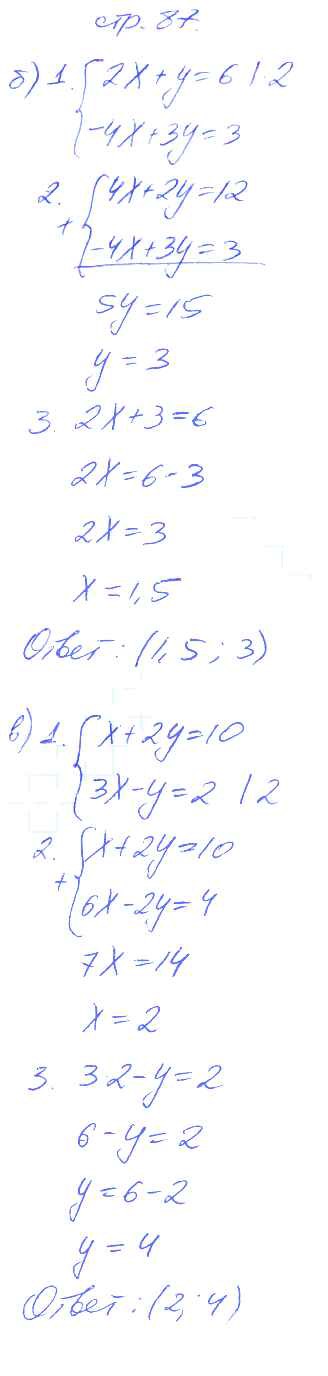 стр. 87.
б) 1. { 2x + y = 6 | · 2
-4x + 3y = 3
2. { 4x + 2y = 12
+ -4x + 3y = 3
5y = 15
y = 3
3. 2x + 3 = 6
2x = 6 - 3
2x = 3
x = 1,5
Ответ: (1,5; 3)
в) 1. { x + 2y = 10
3x - y = 2 | 2
2. { x + 2y = 10
+ 6x - 2y = 4
7x = 14
x = 2
3. 3·2 - y = 2
6 - y = 2
y = 6 - 2
y = 4
Ответ: (2; 4)